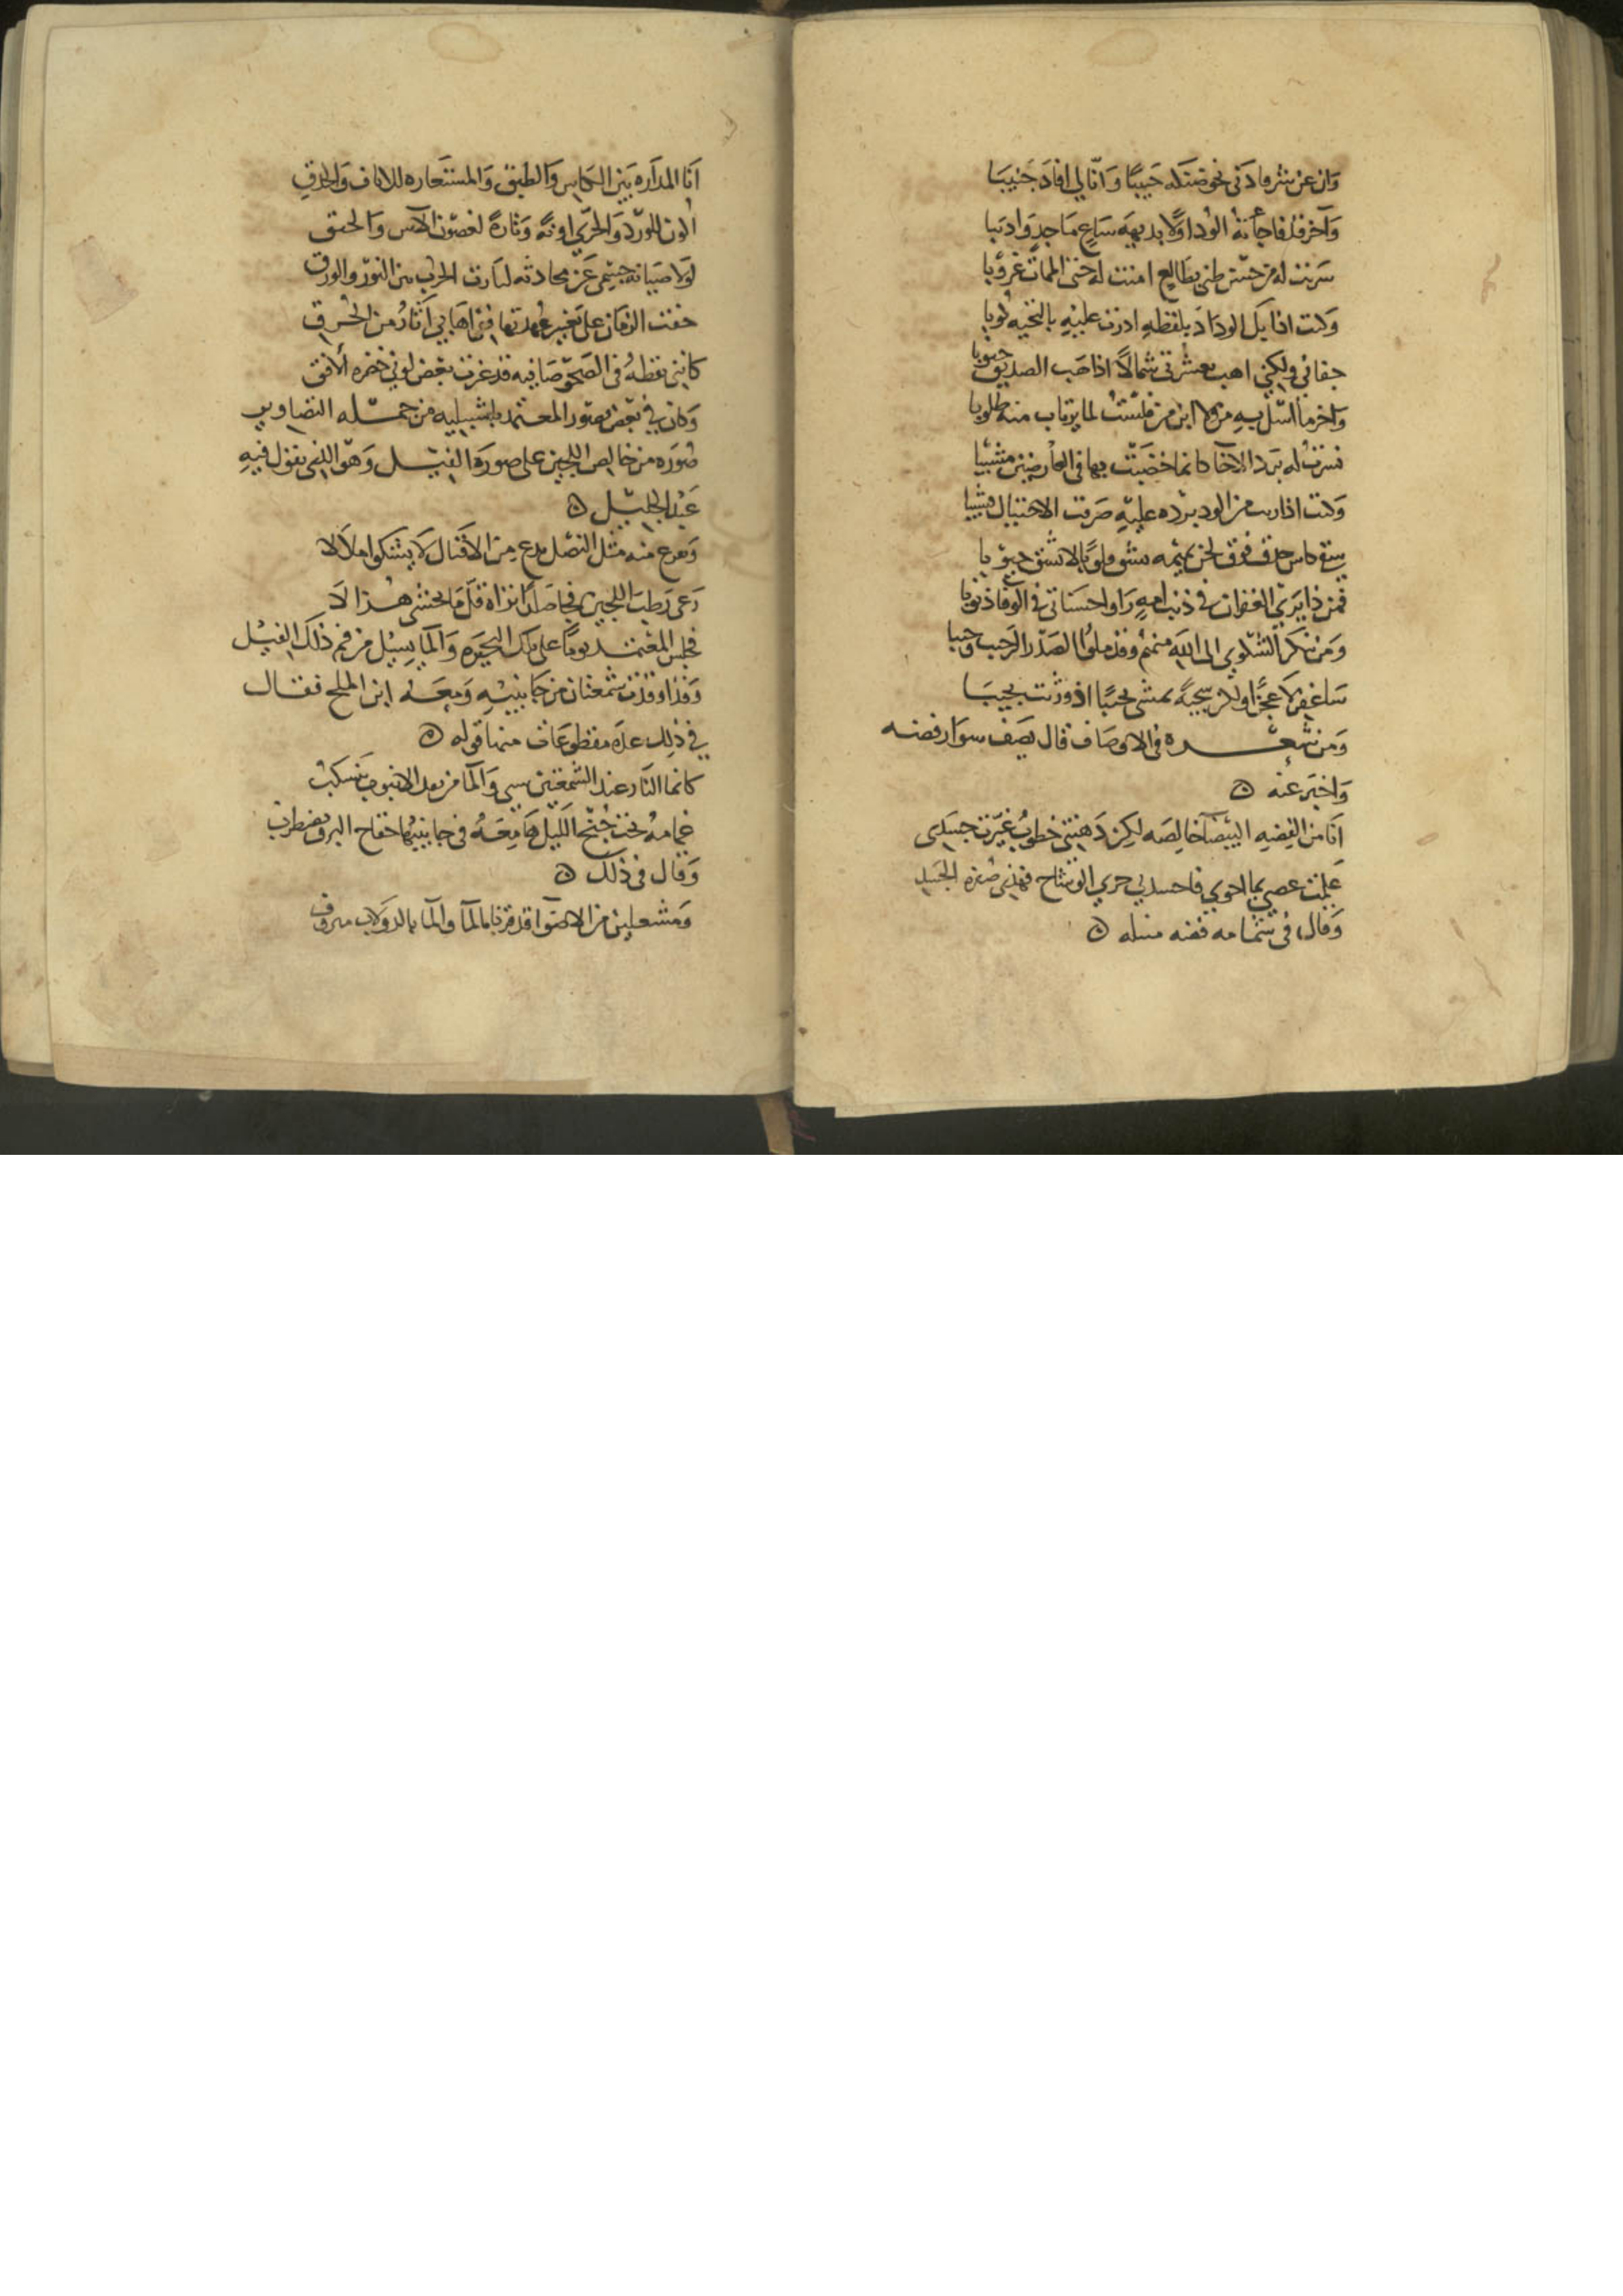 وان عن شرفا دني نحو صنكله حبيبا وانالي افاد جنيبا
وآخر قد فاجأته الود اولا بديهه ساع ماجد وادبا
سرنت له من حسن ظني بطالع امنت له حتى الممات غروبا
وكنت اذا يكل الوداد بلفظه ادرت عليه بالتحيه كوبا
جفاني ولكني اهب بعشرتي شمالا اذا هب الصديق جنوبا
واخر ما استل به من فلست لما يرتاب منه طلوبا
نشرت له برد الاخا كانما خضبت بها في العارضين مشيبا
وكنت اذا رت من الود برده عليه صرت الاحتيال قشيبا
سقى كاس حلو فوق
فمن ذا يرتجي الغفران في ذنب امه راوا حسناتي في الوفا ذنوبا
ومن نكر الشكوي الى الله منهم وقد ملوا الصدر الرحيب وجيبا
ساغفر لا عجزا ولكن سجيه
ومن شعره في الاوصاف قال يصف سوار فضه
واخبر عنه
انا من الفضه البيضا خالصه لكن دهتني خطوب غيرت جسدي
علقت غصن بما احوي فاحسدني جري الوشاح فهذي صفره الجسد
وقال في شمامه فضه مثله
انا المداره بين الكاس والطبق والمستعاره للاناف والحدق
الون للورد والخري اونة وتارة لغصون الاس والحبق
لولا صيانة جسمي عن محادثه لثارت الحرب بين النور والورق
خفت الزمان على تغيير عهدتها ففي اهابي آثار من الحرق
كانني نقطة في الصحو صافيه قد غرت بعض لوني خضره الافق
وكان في بعض صور المعتمد باشبيليه من جمله التصاوير
صوره من خالص اللجين على صورة الفيل وهو الذي يقول فيه
عبد الجليل
ويفرع منه مثل النصل بدع من الافيال لا يشكوا ملالا
رعى رطب اللجين فجا صلدا تراه قل ما يخشى هزالا
فجلس المعتمد يوما على تلك البحيره والما يسيل من فم ذلك الفيل
وقد اوقدت شمعتان من جانبيه ومعه ابن الملح فقال
في ذلك عده مقطوعات منها قوله
كانما النار عند الشمعتين سنى والما من نفذ الانبوب ينسكب
غمامة تحت جنح الليل هامعة في جانبيها خفاح البرق يضطرب
وقال في ذلك
ومشعلين من الاضوا قد قرنا بالما والما بالدولاب منزوف